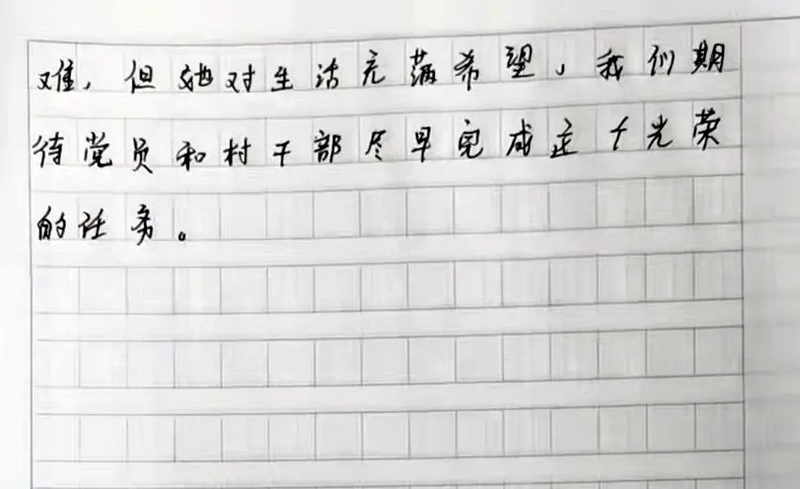 难，但她对生活充满希望，我们期
待党员和村干部尽早完成这个光荣
的任务。